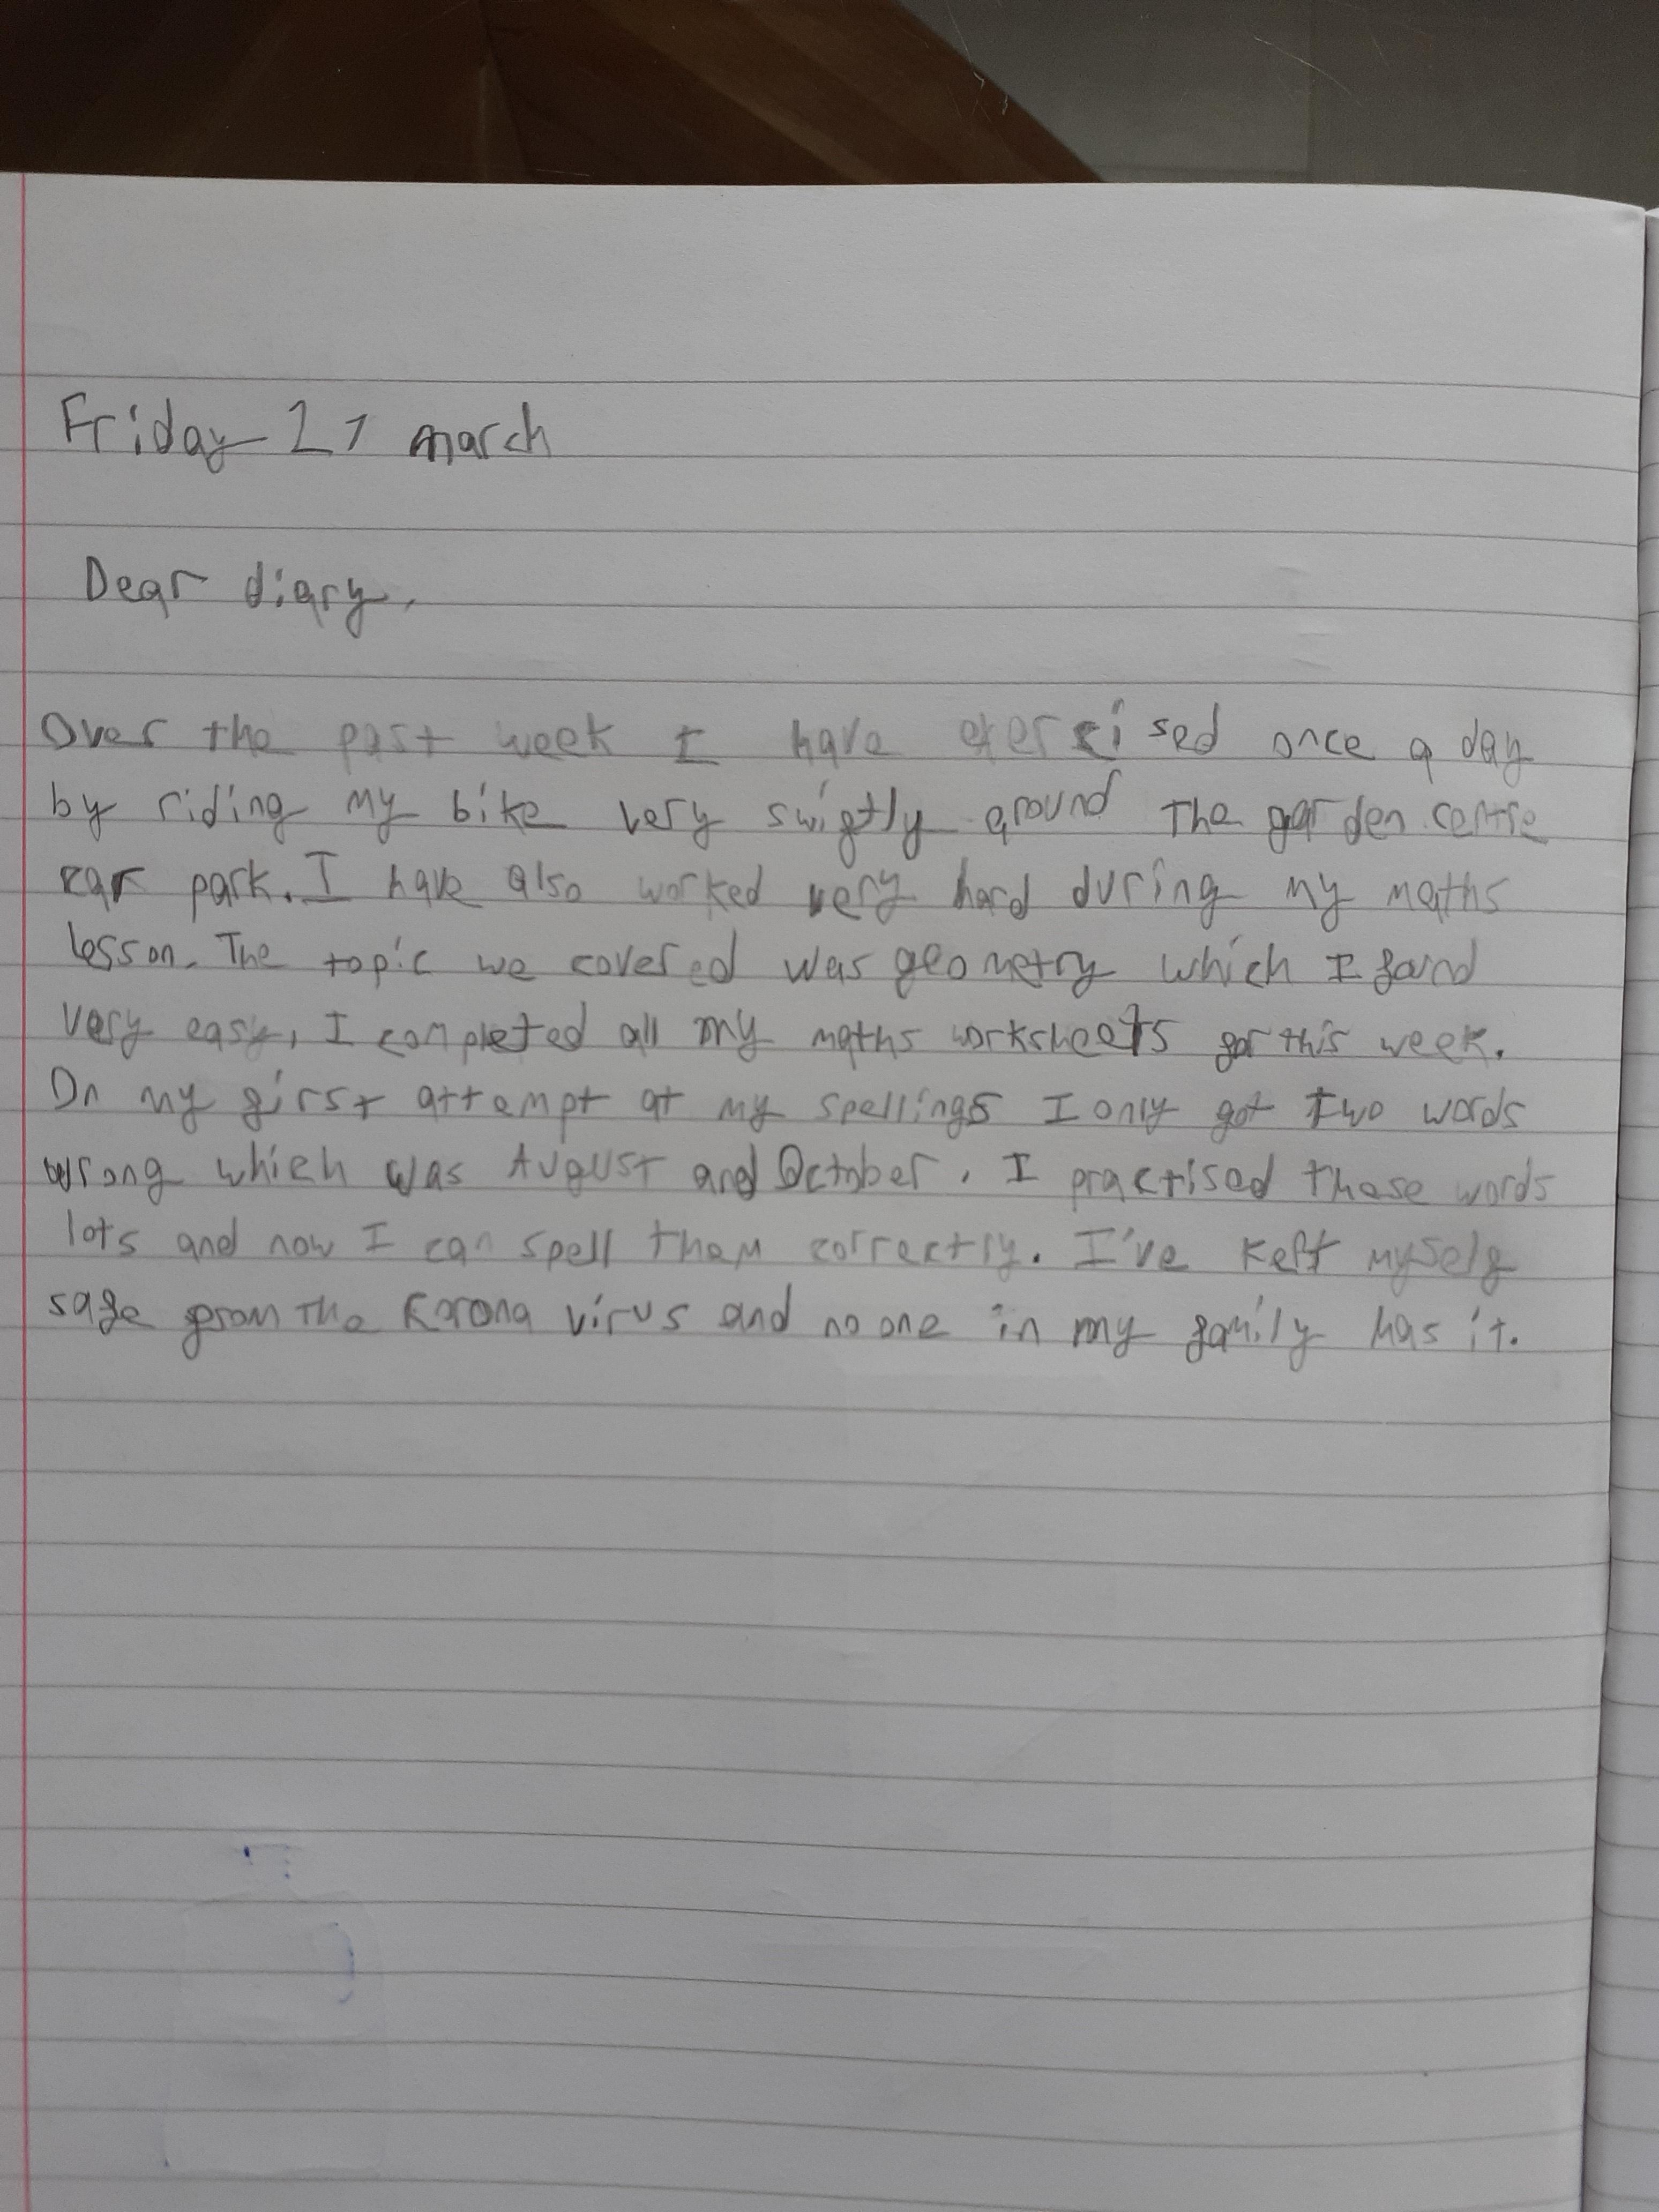 Friday 21 march
Dear diary,
Over the past week I have exercised once a day
by riding my bike very swiftly around The garden centre
car park. I have also worked very hard during my maths
lesson. The topic we covered was geometry which I found
very easy, I completed all my maths worksheets for this week.
On my first attempt at my spellings I only got two words
wrong which was August and October. I practised these words
lots and now I can spell them correctly. I've keft myself
safe from The Korona virus and no one in my family has it.